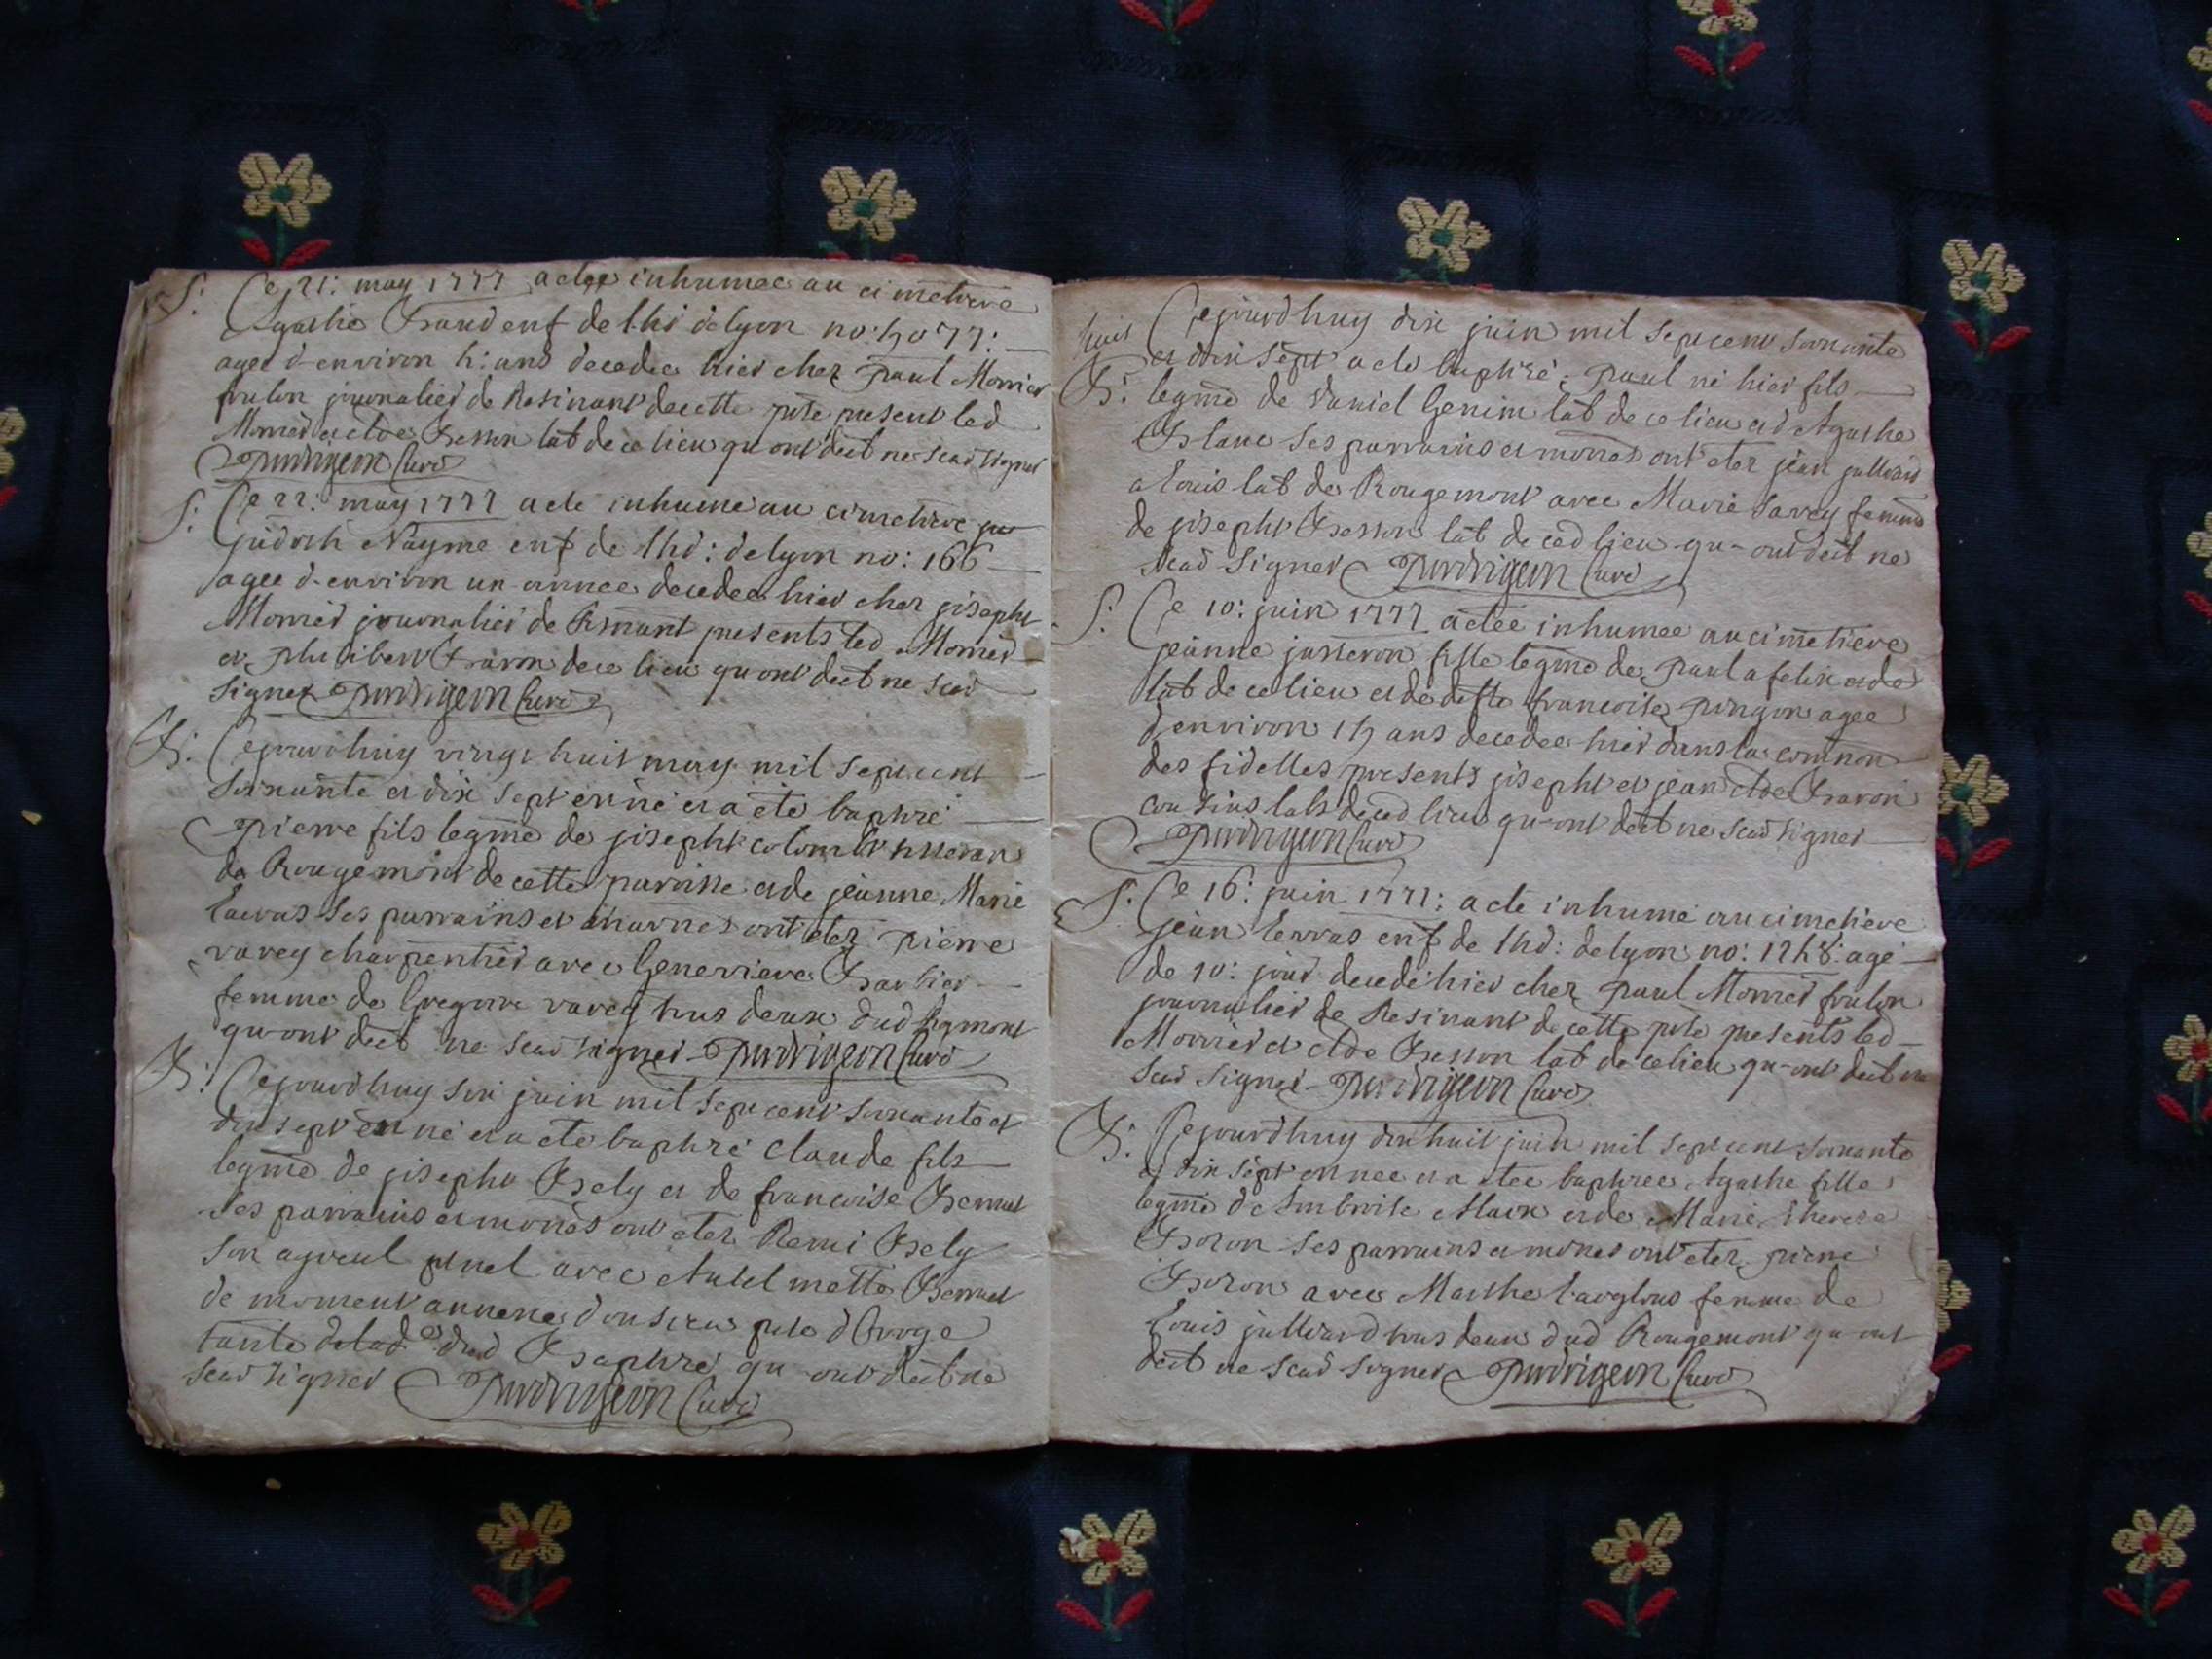 S. Ce 21: may 1777 a etee inhumee au cimetiere
Agathe Fraud enf de lhd delyon no: 4077:
agee d-environ 4: ans decedee hier chez paul Morrier
foulon journalier de Resinant decette pste present led
Morrier et clde Besson lab de ce lieu qu ont deit ne scad signer
Curé
S. Ce 22: may 1777 a ete inhume au cimetiere
judith Nayme enf de lhd: delyon no: 166
agee d-environ un annee decedee hier chez joseph
Morrier journalier de Resinant presents led Morrier
et philibert Bravon dece lieu qu ont deit ne scad
signer Curé
B. Cejourdhuy vingt huit may mil septcent
soixante et dix sept en né et a ete baptizé
pierre fils legme de joseph colomb tisseran
de Rougemont de cette paroisse et de jeanne Marie
Lavras ses parrains et marnes ont etez pierre
varey charpentier avec Genevieve Barbier
femme de Gregoire varey tous deux dud
qu-ont deit ne scad signer Curé
B. Cejourdhuy six juin mil septcent soixante et
dix sept en né et a ete baptizé claude fils
legme de joseph Bely et de francoise Bernud
ses parrains et mornes ont etez Remi Bely
son ayeul avec Bernud
de
tante delad dud Baptizé qu-ont deit ne
scad signer Curé
huit Cejourdhuy dix juin mil septcent soixante
et dix sept a ete baptizé paul né hier fils
B. legme de Daniel Genin lab de ce lieu et d Agathe
Blanc ses parrains et mornes ont etez jean julliard
a Louis lab de Rougemont avec Marie Savey femme
de joseph Besson lab de ced lieu qu-ont deit ne
scad signer Curé
S. Ce 10: juin 1777 a etee inhumee au cimetiere
jeanne jasseron fille legme de paul a felix
lab de ce lieu et de deffte francoise pingon agee
d environ 14 ans decedee hier dans la comnon
des fidelles presents joseph et jean clde Bravon
cousins labs deced lieu qu-ont deit ne scad signer
Curé
S. Ce 16: juin 1777: a ete inhume au cimetiere
jean Terras enf de lhd: delyon no: 1248: agé
de 10: jour decedé hier chez paul Morrier foulon
journalier de Resinant decette pste presents led
Morrier et clde Besson lab de ce lieu qu-ont deit ne
scad signer Curé
B. Cejourdhuy dix huit juin mil septcent soixante
et dix sept en nee et a etee baptizee Agathe fille
legme d Ambroise Marx et de Marie therese
Bozon ses parrains et mornes ont etez pierre
Bozon avec Marthe femme de
Louis julliard tous deux dud Rougemont qu ont
deit ne scad signer Curé